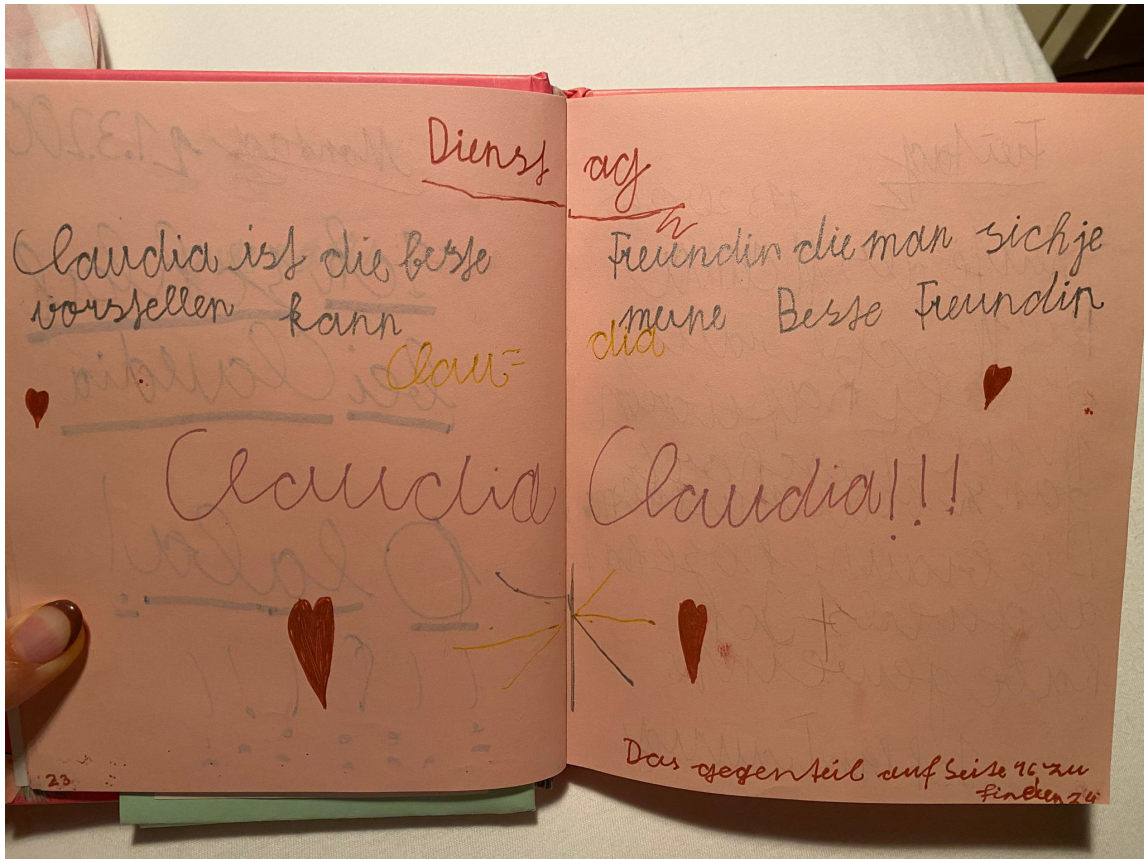 Dienstag
Claudia ist die beste Freundin die man sich je
vorstellen kann meine Beste Freundin
Clau=dia
Claudia Claudia!!!
Das gegenteil auf Seite 16 zu
finden 24
23